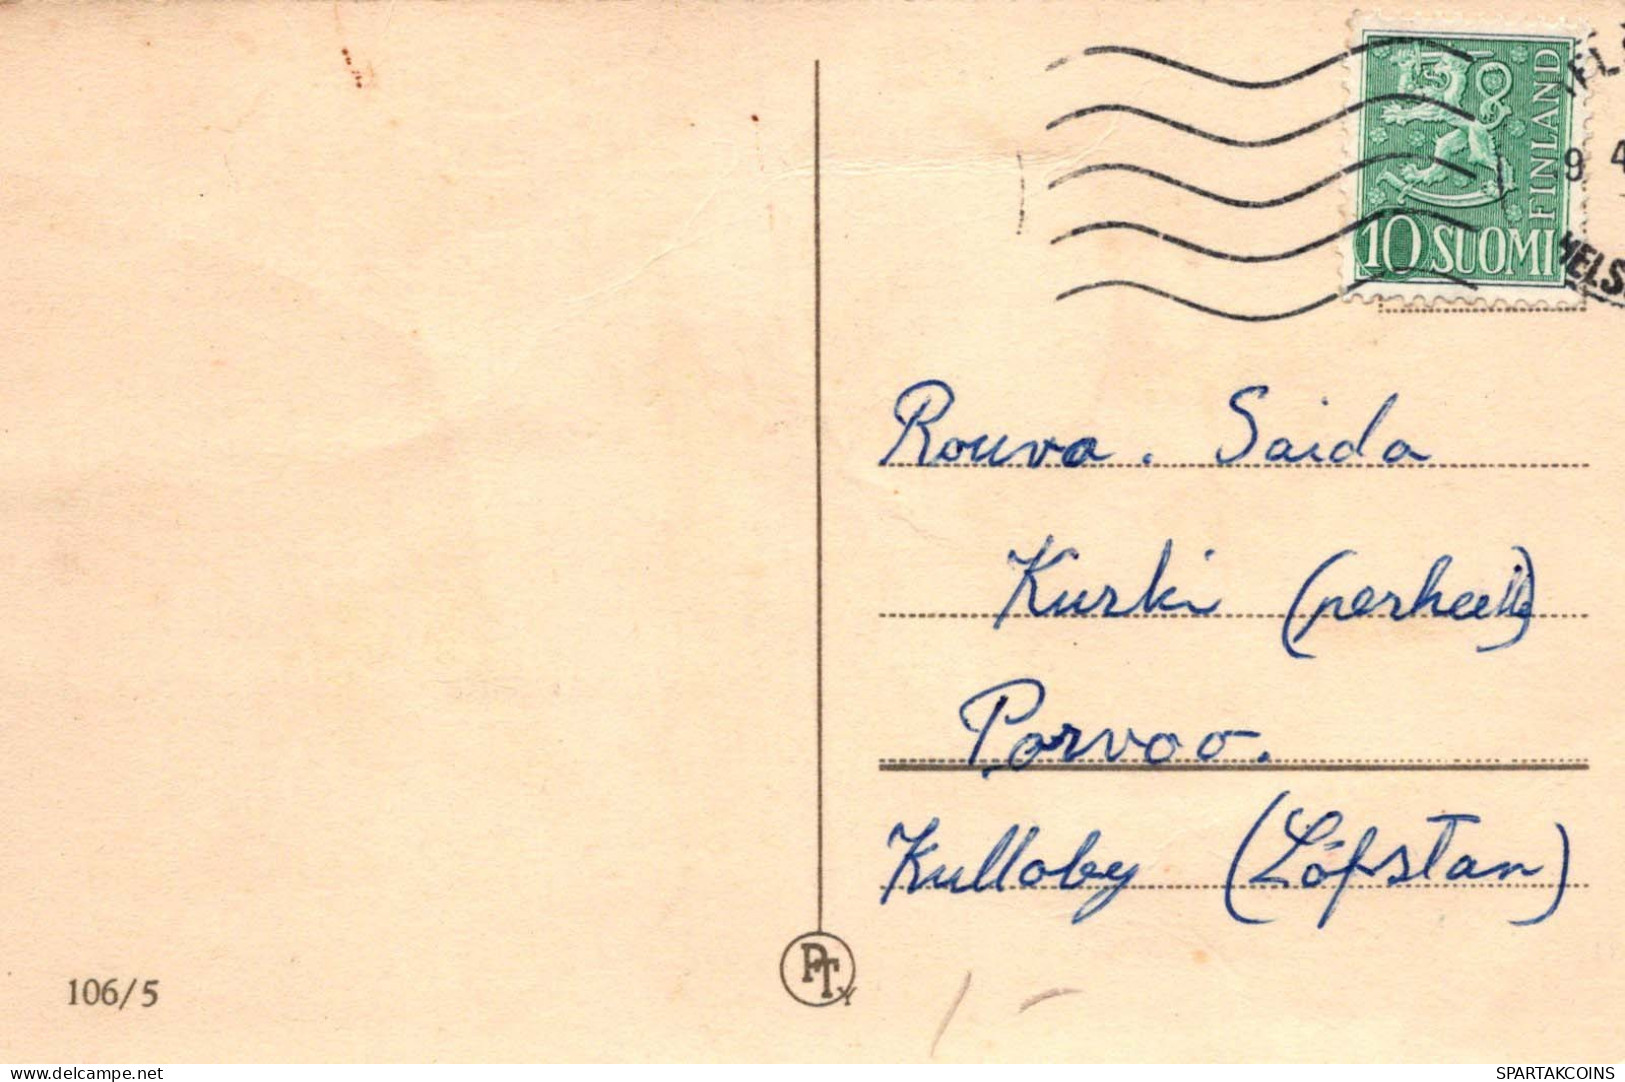 FINLAND
10 SUOMI
9 4
HELS
Rouva. Saida
Kurki (perheell)
Porvoo.
Kulloby (Löfstan)
PTY
106/5
delcampe.net
SPARTAKCOINS